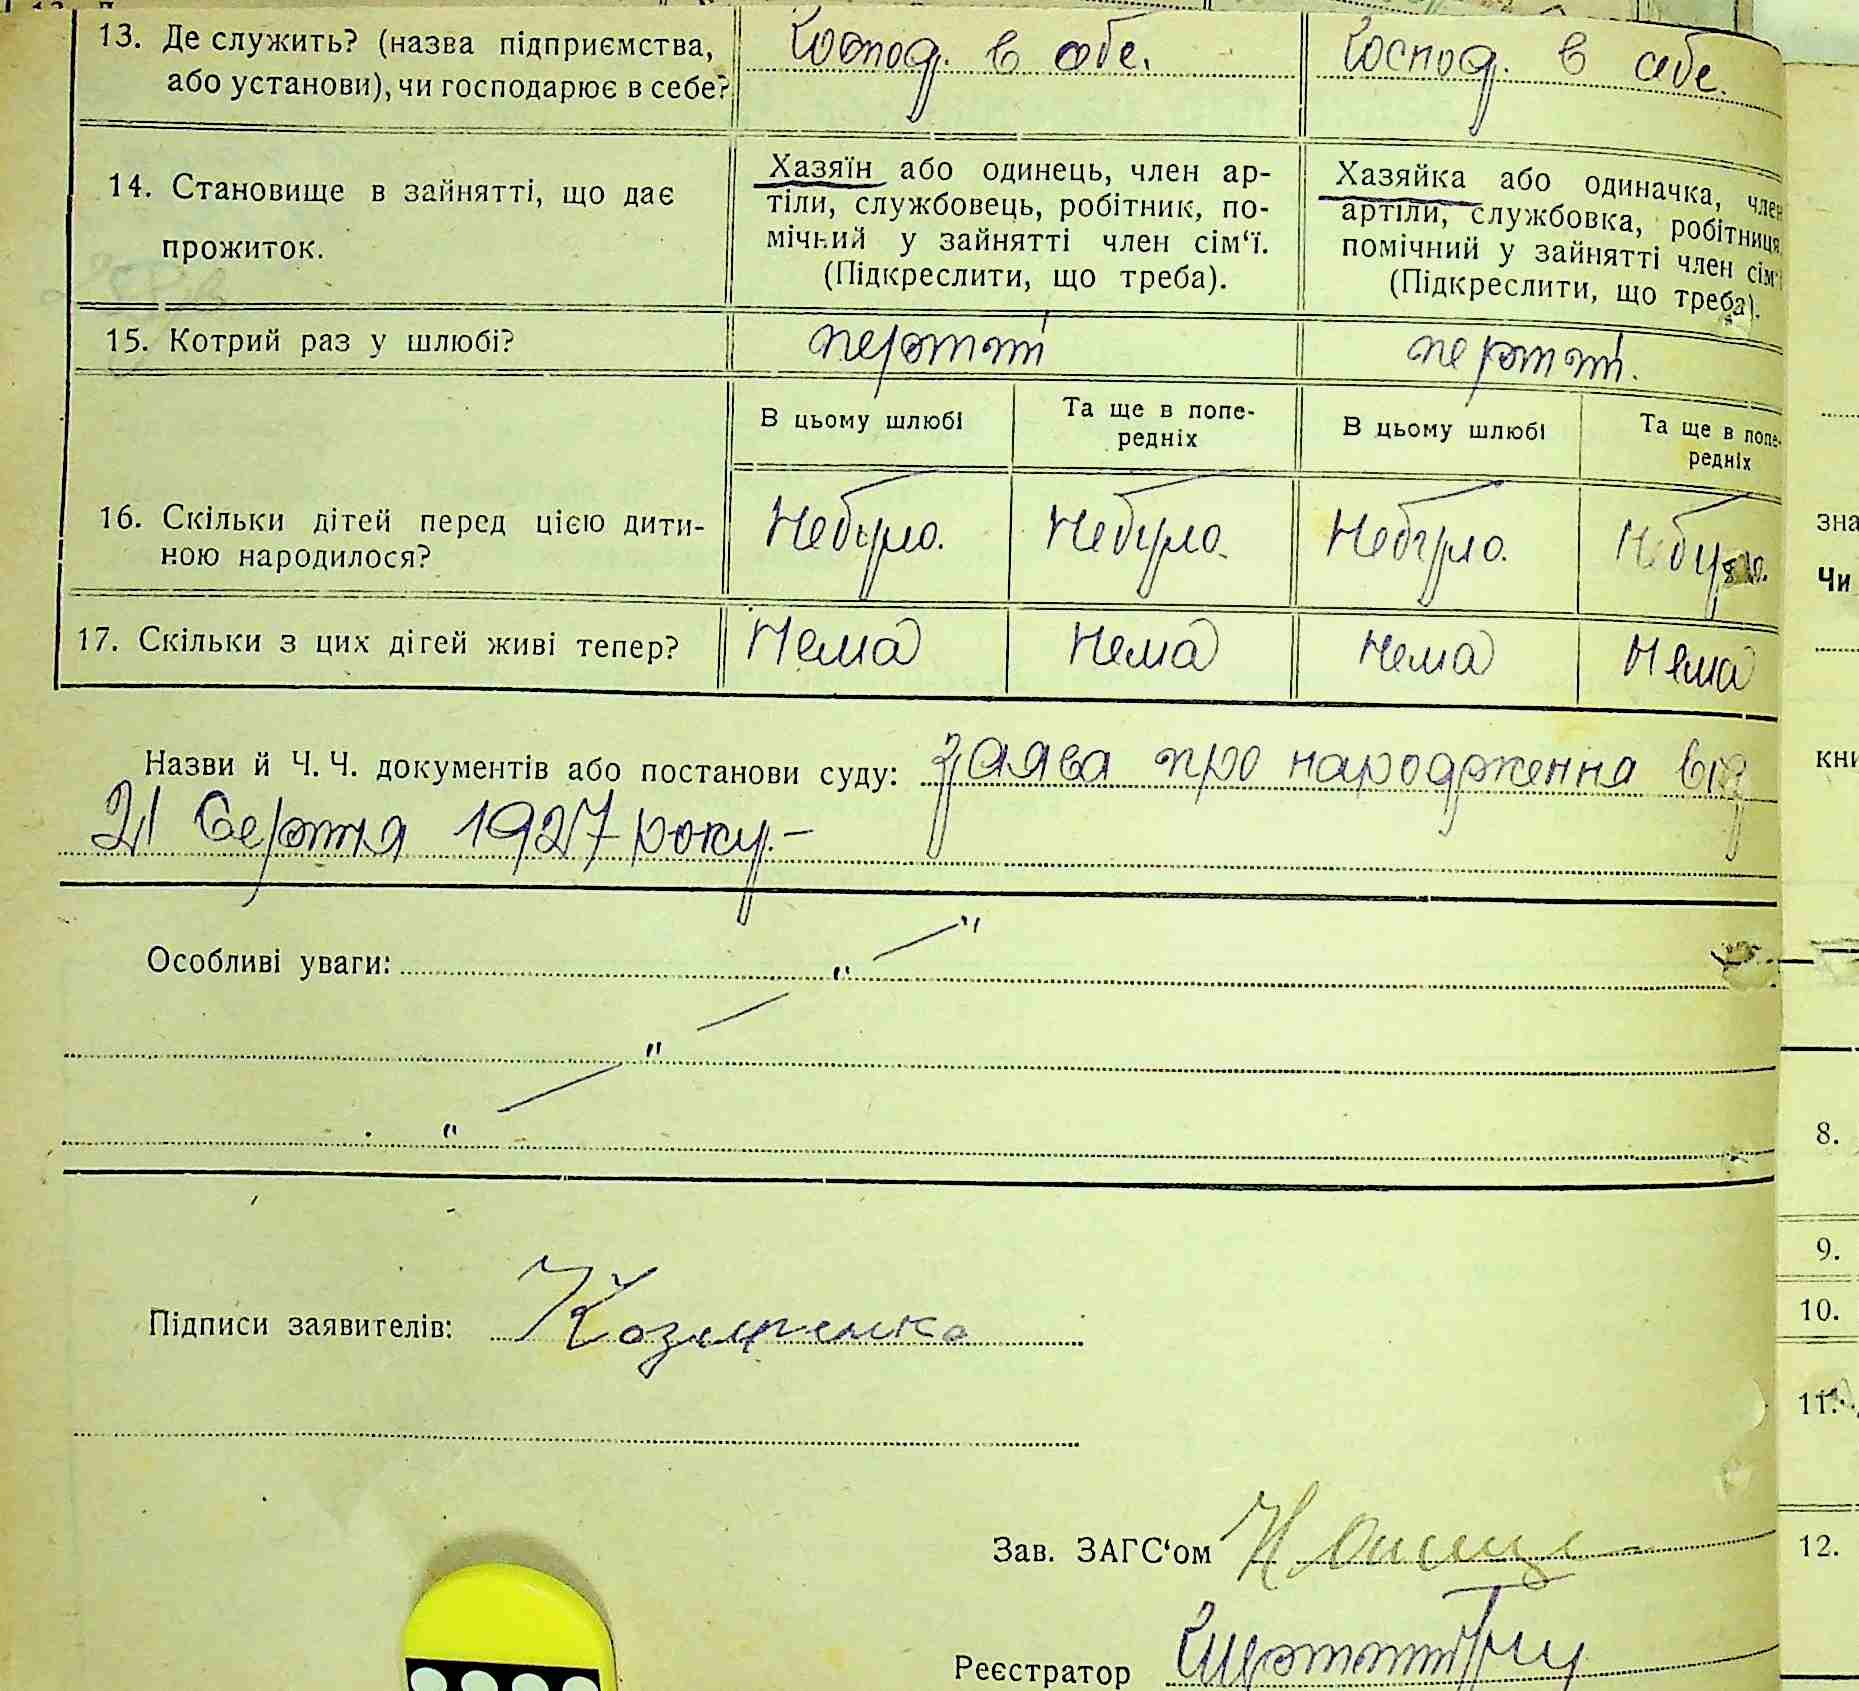 13. Де служить? (назва підприємства, або установи), чи господарює в себе? Господ. в себе. Господ. в себе.
14. Становище в зайнятті, що дає прожиток.
Хазяїн або одинець, член ар-
тіли, службовець, робітник, по-
мічний у зайнятті член сім‘ї.
(Підкреслити, що треба).
Хазяйка або одиначка, член
артіли, службовка, робітниця,
помічний у зайнятті член сім‘ї
(Підкреслити, що треба).
15. Котрий раз у шлюбі? перший перший.
В цьому шлюбі
Та ще в попе-
редніх
В цьому шлюбі
Та ще в попе-
редніх
16. Скільки дітей перед цією дити-
ною народилося?
Небуло. Небуло. Небуло. Небуло.
17. Скільки з цих дітей живі тепер? Нема Нема Нема Нема
Назви й Ч. Ч. документів або постанови суду: заява про народження від
21 Серпня 1927 року.-
Особливі уваги: „ — "
„ —
„ —
Підписи заявителів:
Зав. ЗАГС‘ом
Реєстратор
зна
Чи
кни
8.
9.
10.
11.
12.